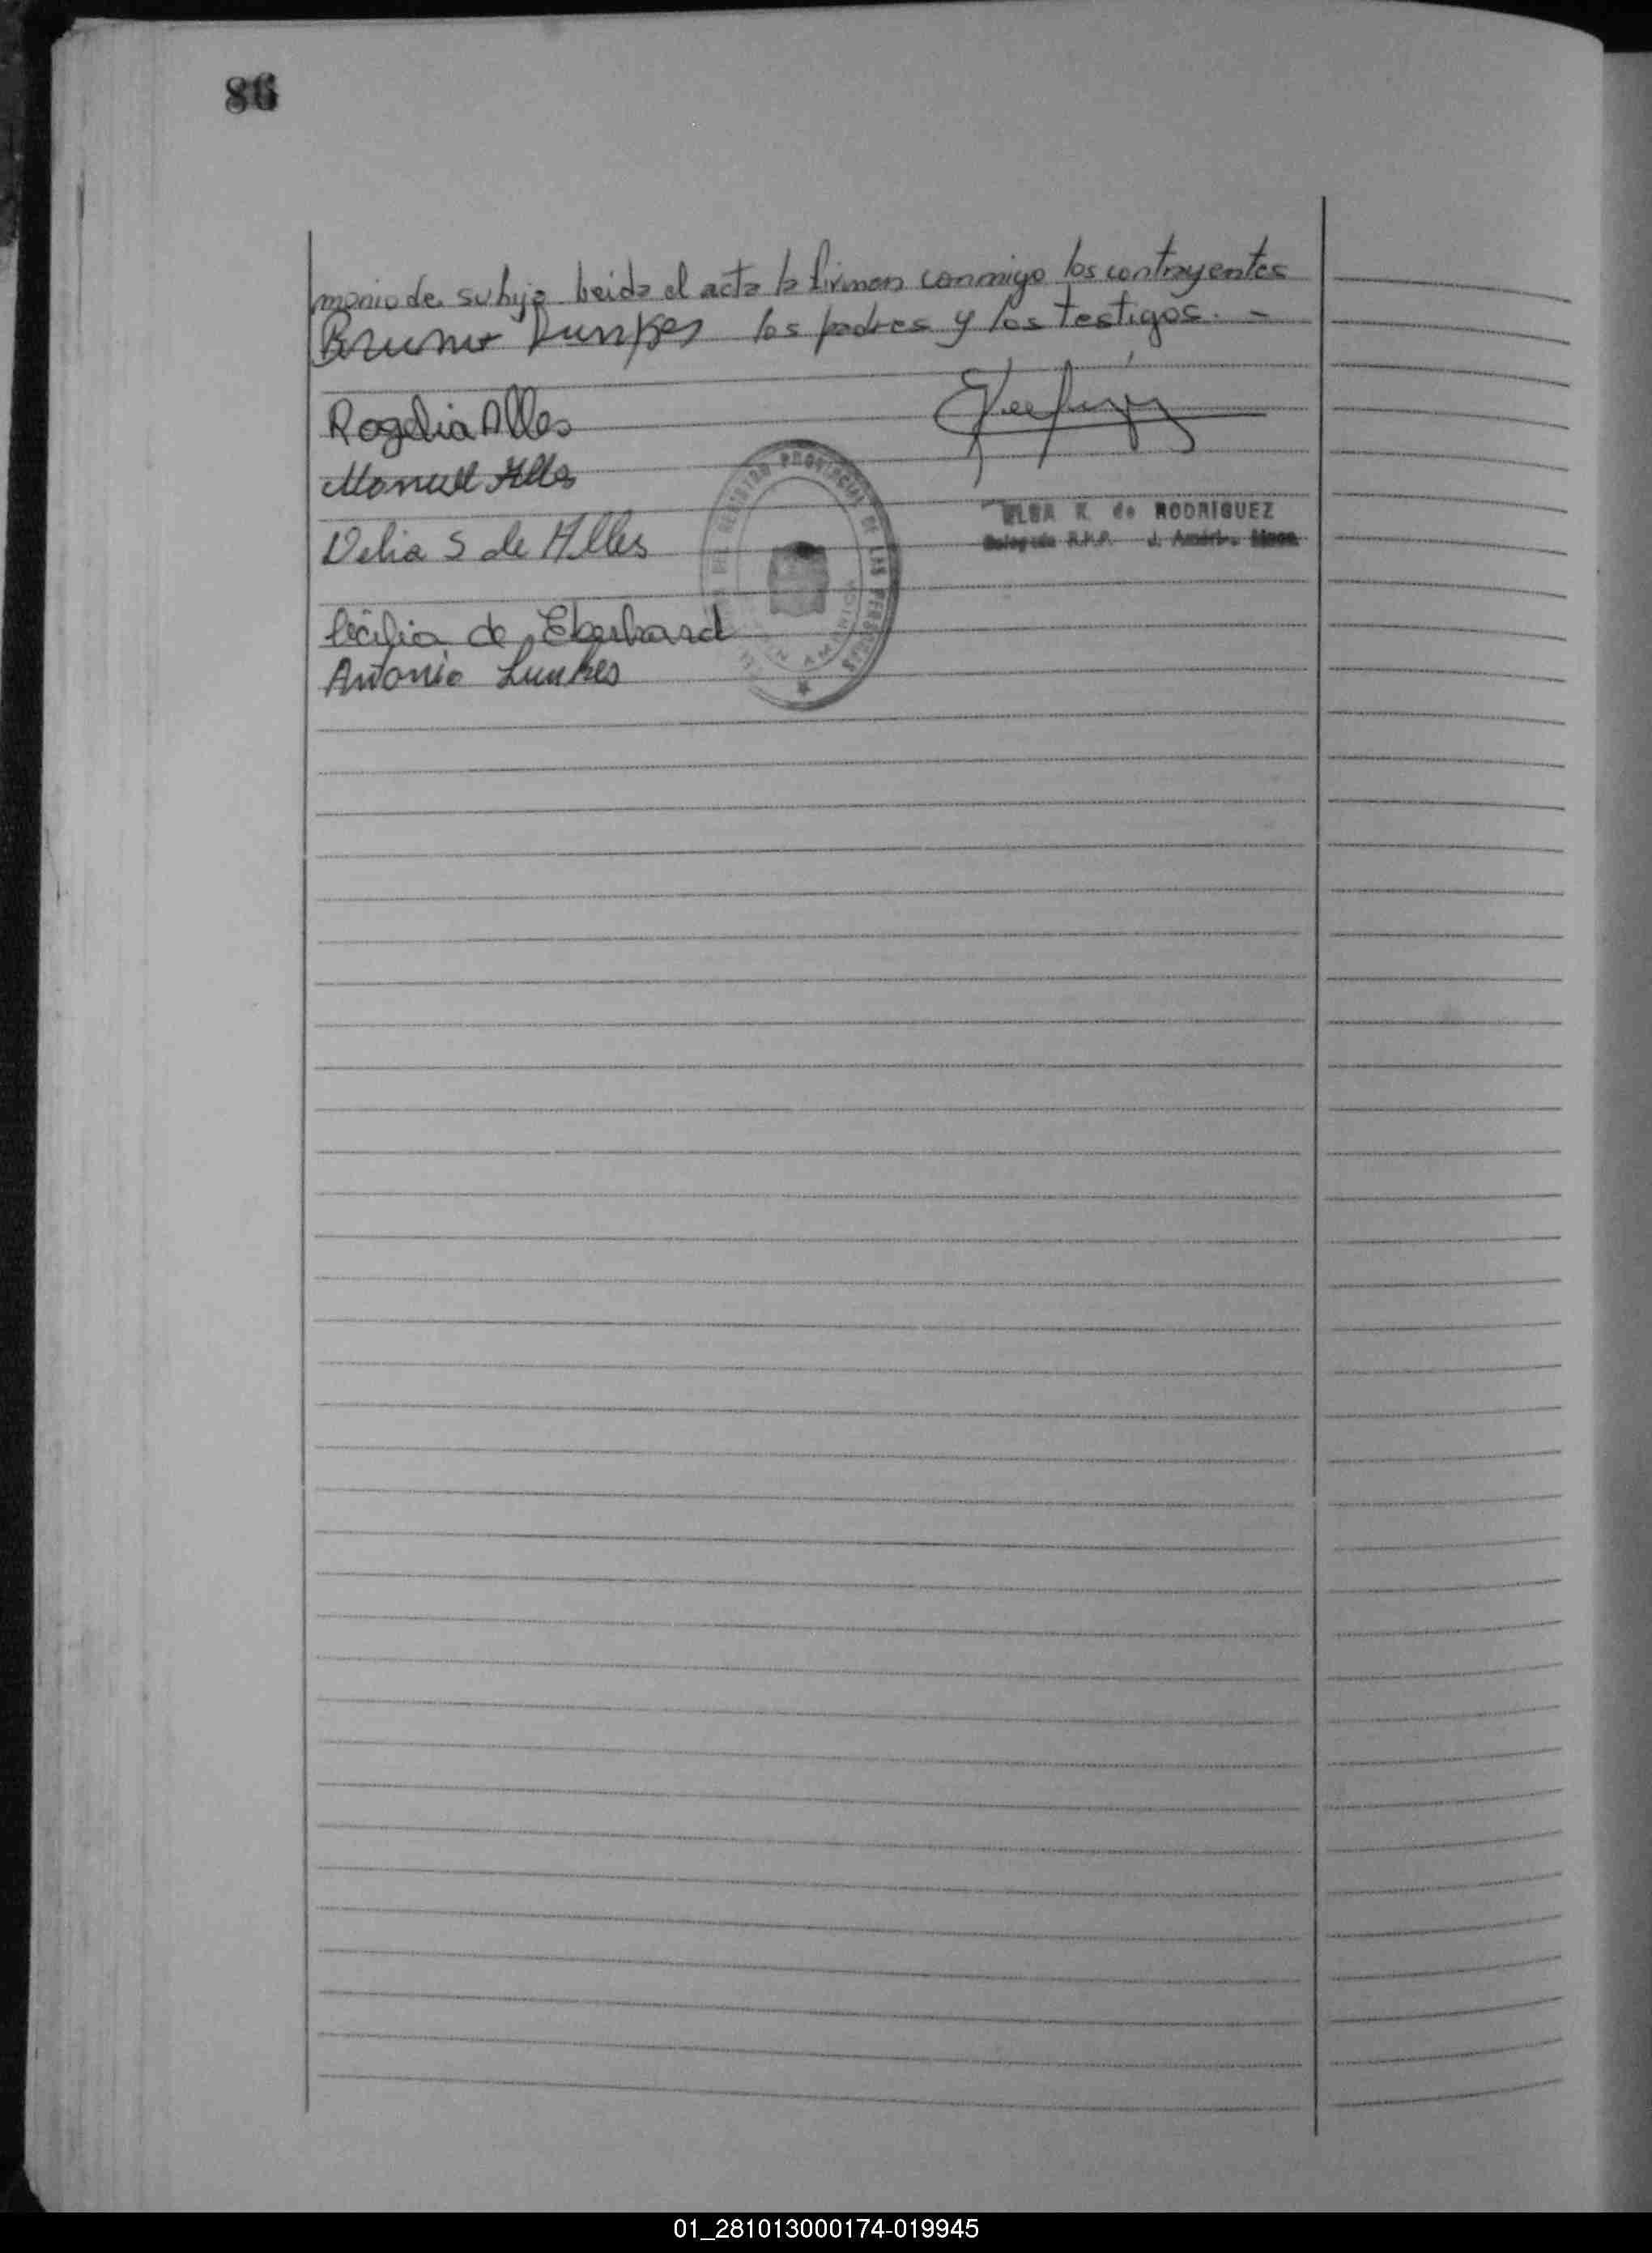 86
monio de su hija. Leida el acta la firman conmigo los contrayentes
Bruno Lunkes los padres y los testigos. -
Rogelia Alles
Manuel Alles
Delia S de Alles
ELSA K. de RODRIGUEZ
DEL REGISTRO PROVINCIAL DE LAS PERSONAS
Cecilia de Eberhard
Antonio Lunkes
01_281013000174-019945